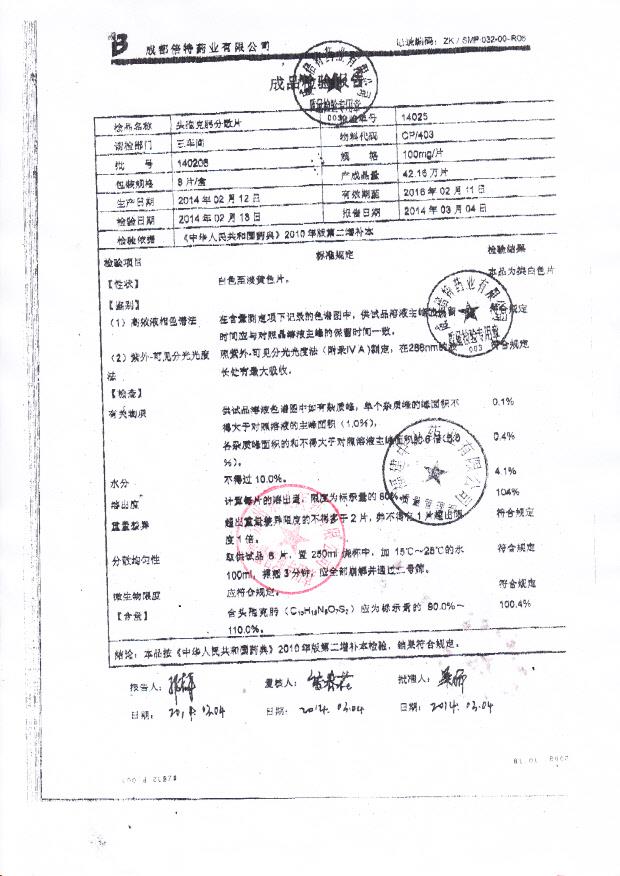 成都倍特药业有限公司
记录编码：ZK / SMP-032-00-R06
成品检验报告
检品名称 头孢克肟分散片 检验单号 14025
请检部门 三车间 物料代码 CP/403
批 号 140206 规 格 100mg/片
包装规格 8 片/盒 产成品量 42.16 万片
生产日期 2014 年 02 月 12 日 有效期至 2016 年 02 月 11 日
检验日期 2014 年 02 月 18 日 报告日期 2014 年 03 月 04 日
检验依据 《中华人民共和国药典》2010 年版第二增补本
检验项目 标准规定 检验结果
【性状】 白色至淡黄色片。 本品为类白色片
【鉴别】
（1）高效液相色谱法 在含量测定项下记录的色谱图中，供试品溶液主峰的保留 符合规定
时间应与对照品溶液主峰的保留时间一致。
（2）紫外-可见分光光度 照紫外-可见分光光度法（附录IV A）测定，在288nm的波 符合规定
法 长处有最大吸收。
【检查】
有关物质 供试品溶液色谱图中如有杂质峰，单个杂质峰的峰面积不 0.1%
得大于对照溶液的主峰面积（1.0%），
各杂质峰面积的和不得大于对照溶液主峰面积的 0.4%
%）。
水分 不得过 10.0%。 4.1%
溶出度 计算每片的溶出量，限度为标示量的 80% 104%
重量差异 超出重量差异限度的不得多于 2 片，并不得有 1 片超出限 符合规定
度 1 倍。
分散均匀性 取供试品 6 片，置 250ml 烧杯中，加 15℃～25℃的水 符合规定
100ml，振摇 3 分钟，应全部崩解并通过二号筛。
微生物限度 应符合规定。 符合规定
【含量】 含头孢克肟（C₁₆H₁₅N₅O₇S₂）应为标示量的 90.0%～ 100.4%
110.0%。
结论：本品按《中华人民共和国药典》2010 年版第二增补本检验，结果符合规定。
报告人： 复核人： 批准人：
日期： 2014. 03.04 日期： 2014. 03.04 日期： 2014. 03.04
质量检验专用章
003
质量检验专用章
003